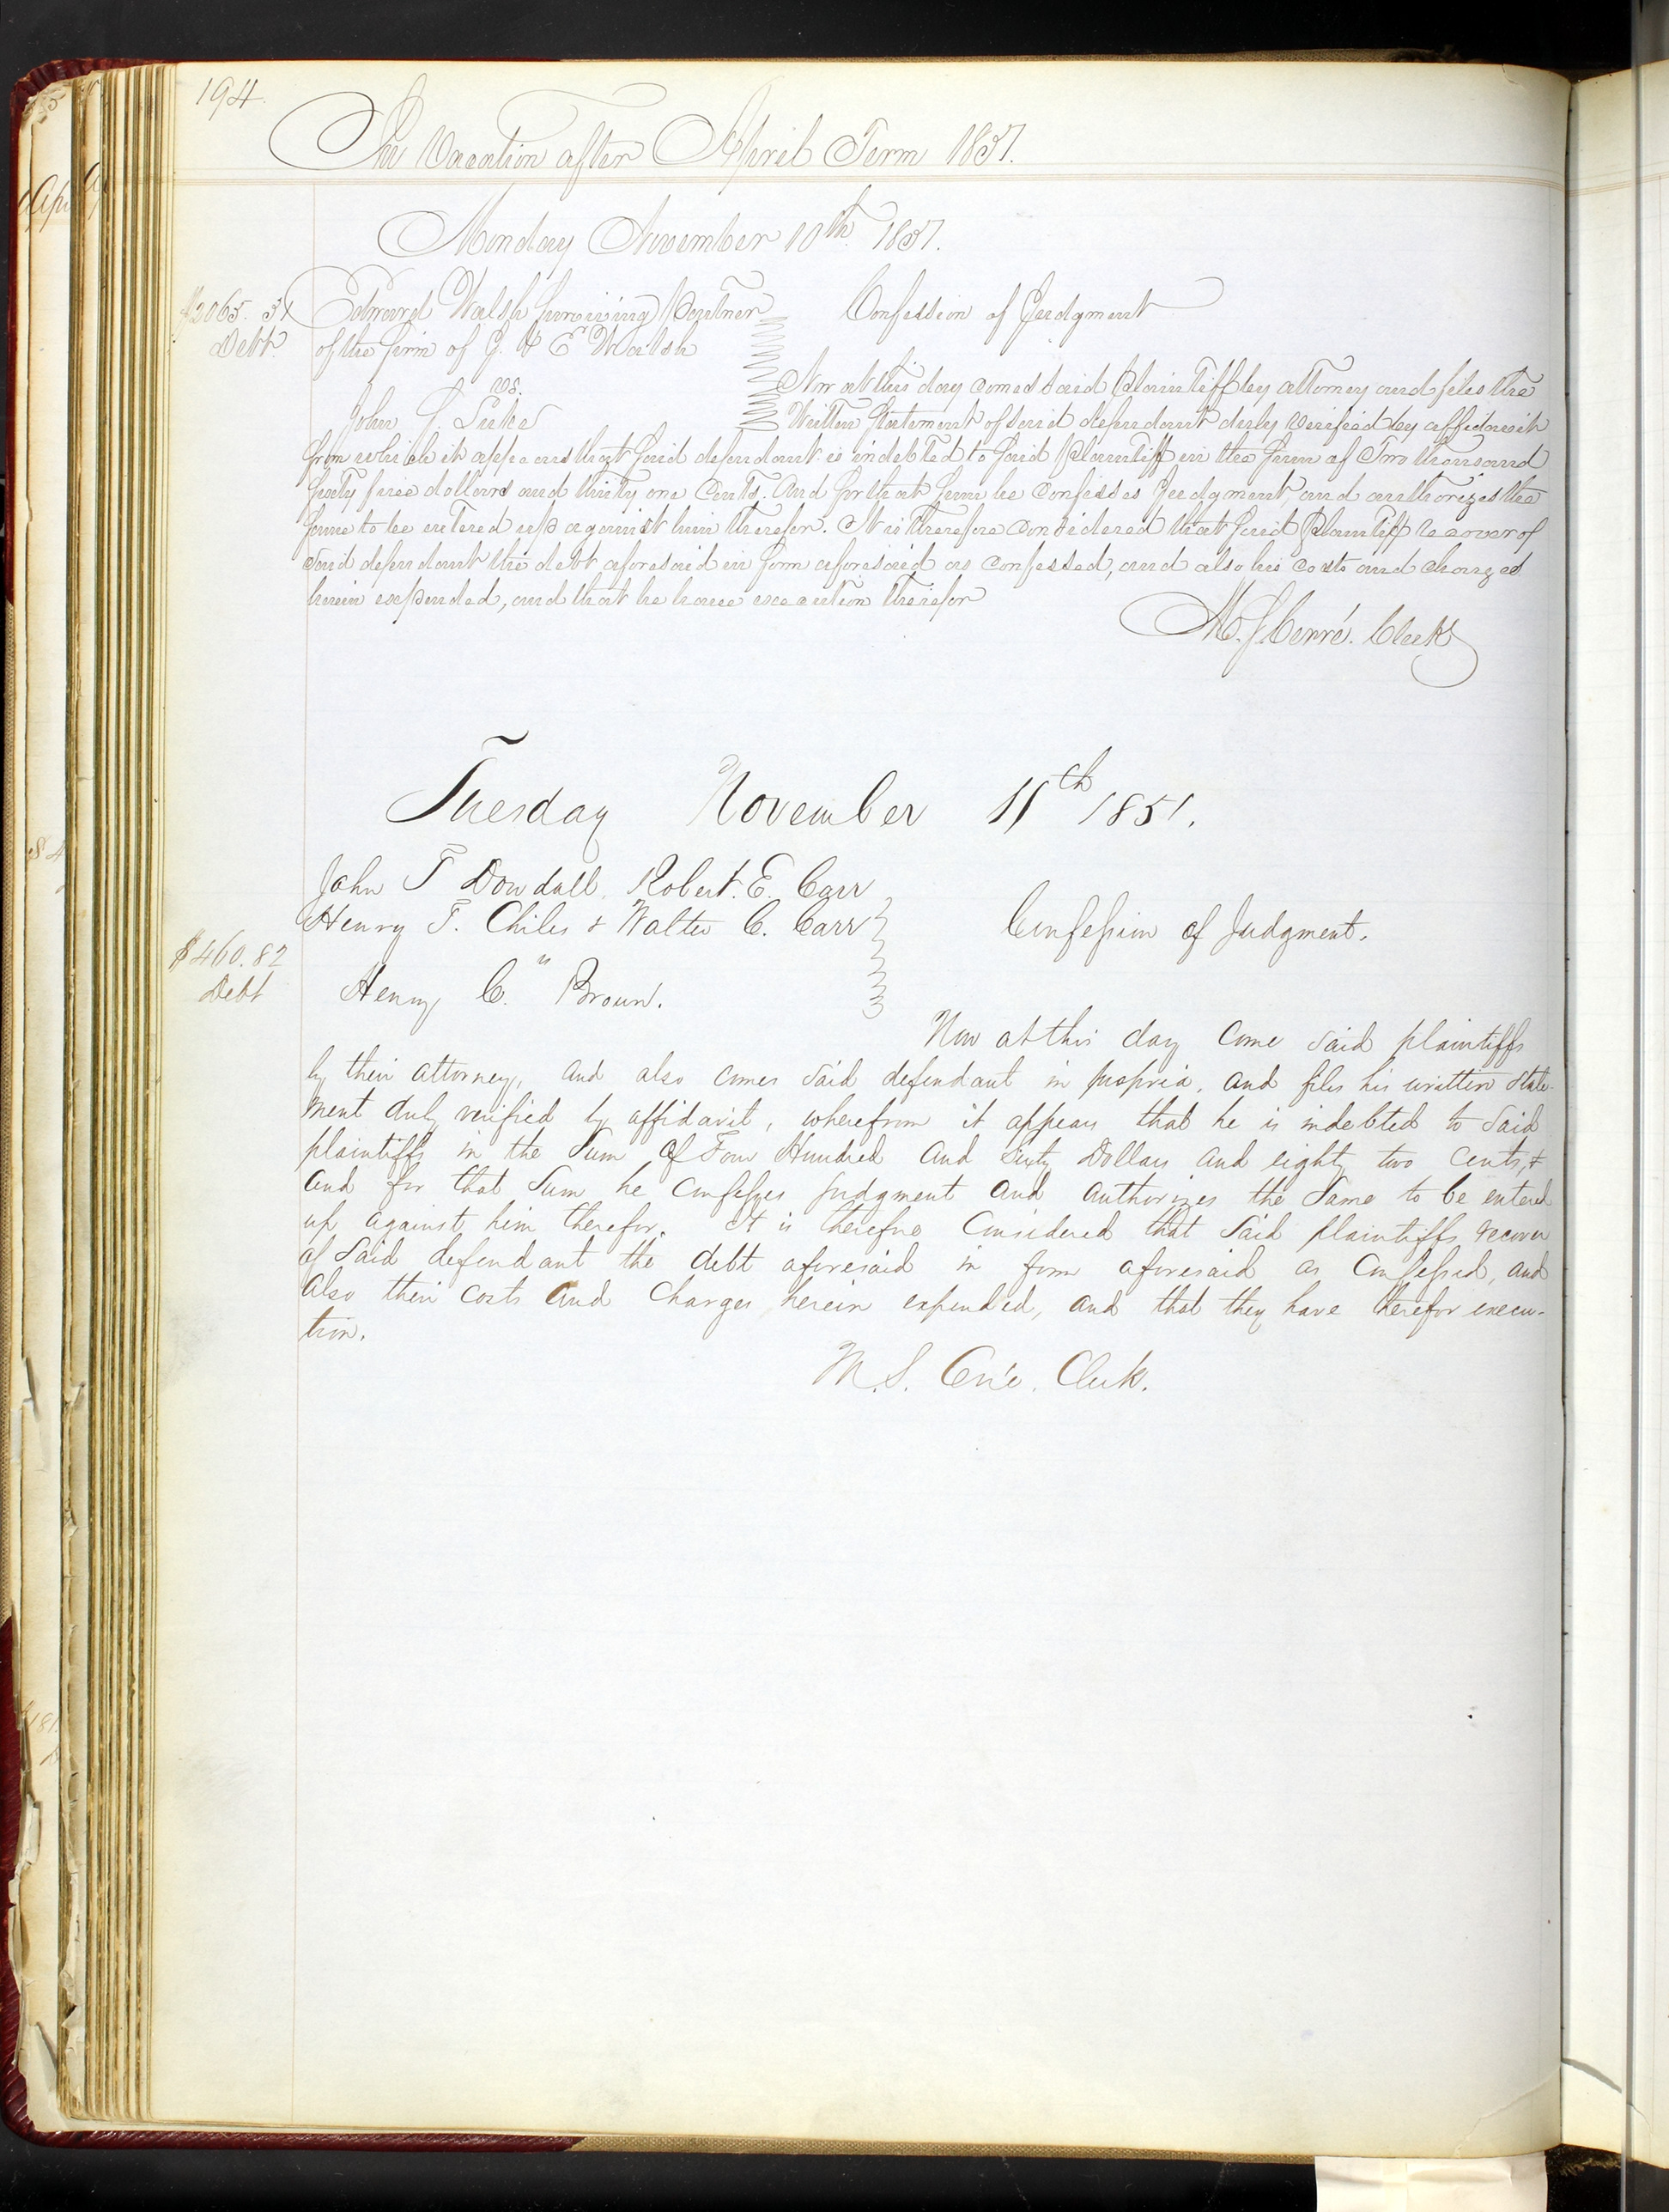 194.
In Vacation after April Term 1851.
Monday November 10th 1851.
$2065.31
Debt.
Edward Walsh surviving Partner
of the firm of J. & E Walsh
vs.
John T. Luke
Confession of Judgment
Now at this day comes said Plaintiff by attorney and files the
Written Statement of said defendant duly verified by affidavit
from which it appears that said defendant is indebted to said Plaintiff in the sum of Two thousand
sixty five dollars and thirty one Cents. And for that sum he Confesses Judgment, and authorizes the
same to be entered up against him therefor. It is therefore Considered that said Plaintiff recover of
said defendant the debt aforesaid in form aforesaid as Confessed, and also his costs and charges
herein expended, and that he have execution therefor
M. S. Cerré. Clerk
Tuesday November 11th 1851.
John T Dowdall. Robert. E. Carr
Henry T. Chiles & Walter C. Carr
$460.82
Debt
vs
Henry C. Brown.
Confession of Judgment.
Now at this day come said plaintiffs
by their attorney, and also comes said defendant in propria, and files his written state-
ment duly verified by affidavit, wherefrom it appears that he is indebted to said
plaintiffs in the sum of Four Hundred and sixty Dollars and eighty two cents, &
and for that sum he confesses judgment and authorizes the same to be entered
up against him therefor. It is therefore considered that said plaintiffs recover
of said defendant the debt aforesaid in form aforesaid as confessed, and
also their costs and charges herein expended, and that they have therefor execu-
tion.
M. S. Cerré. Clerk.